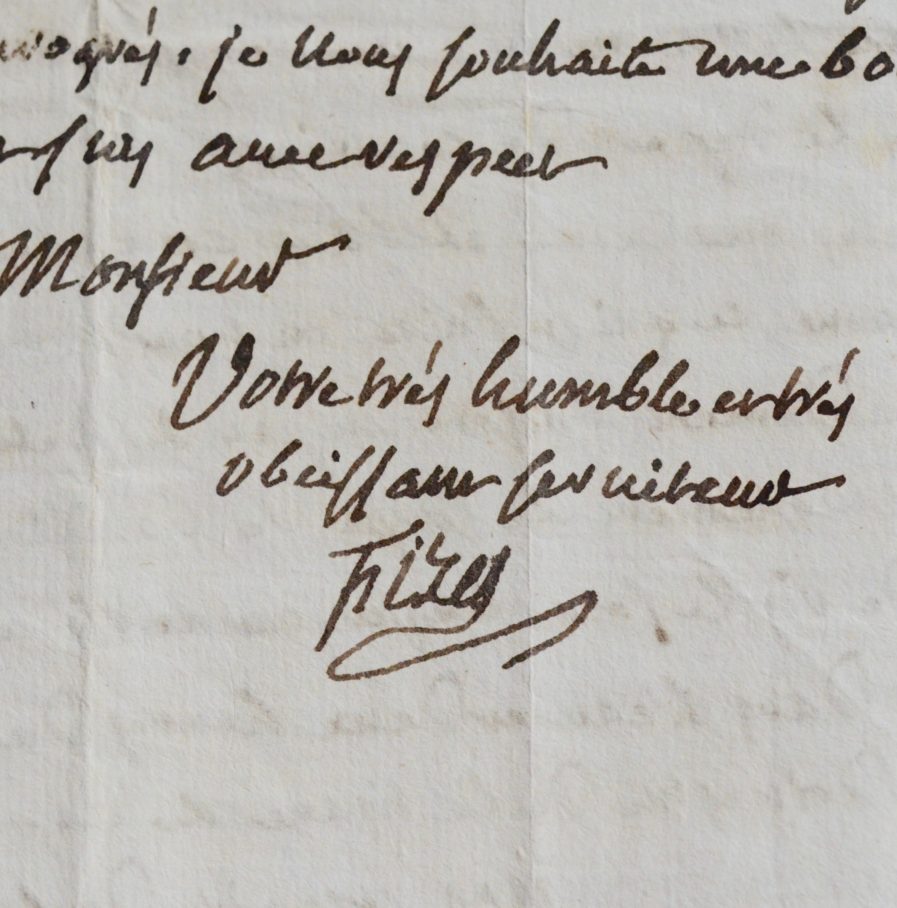 je vous souhaite une bo
suis avec respect
Monsieur
Votre tres humble et trés
obeissant serviteur
Fizes